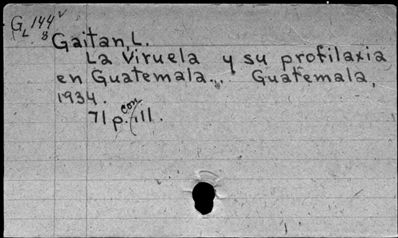 GL 144 v
8
Gaitan, L.
La Viruela y su profilaxia
en Guatemala... Guatemala,
1934.
71 p. con ill.